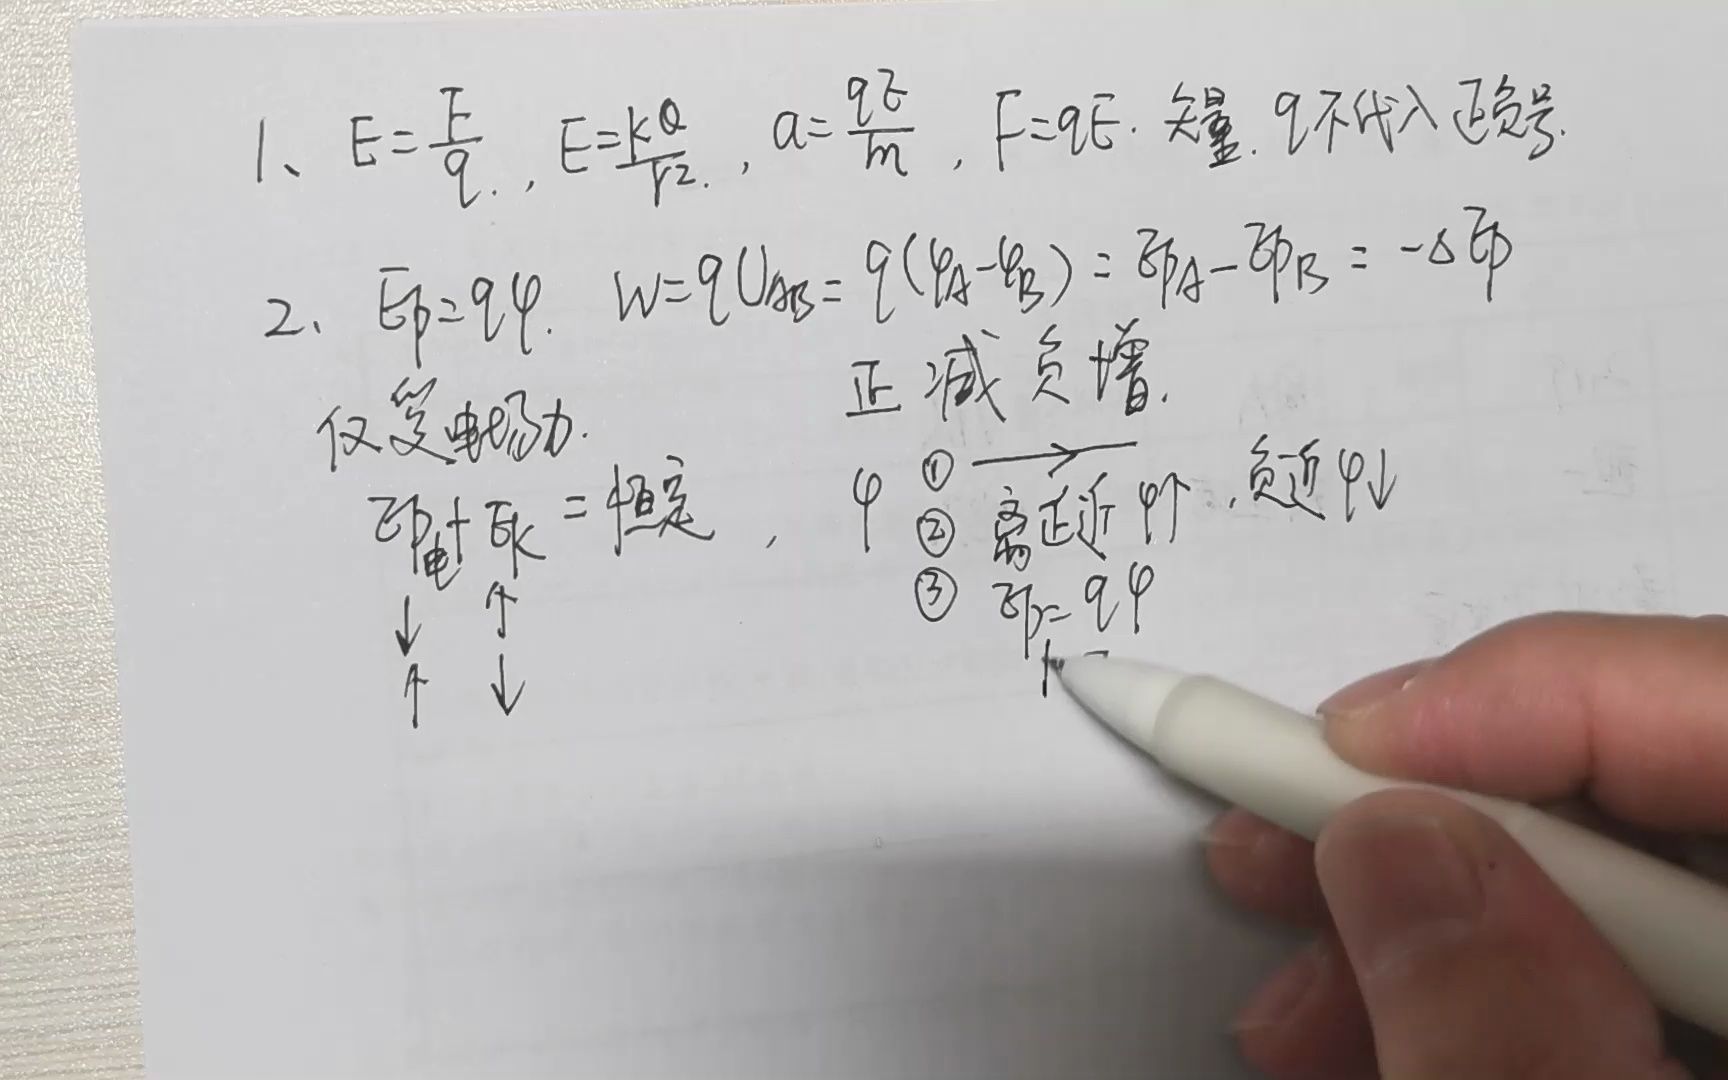 1、 E=F/q., E=kQ/r²., a=qE/m, F=qE. 矢量. q不代入正负号.
2、 Ep=qφ. W=qUAB=q(φA-φB)=EpA-EpB=-ΔEp
正减负增.
仅受电场力.
Ep电+Ek=恒定, φ ① →
② 离正近φ↑, 负近φ↓
③ Ep=qφ
↓ ↑
↑ ↓